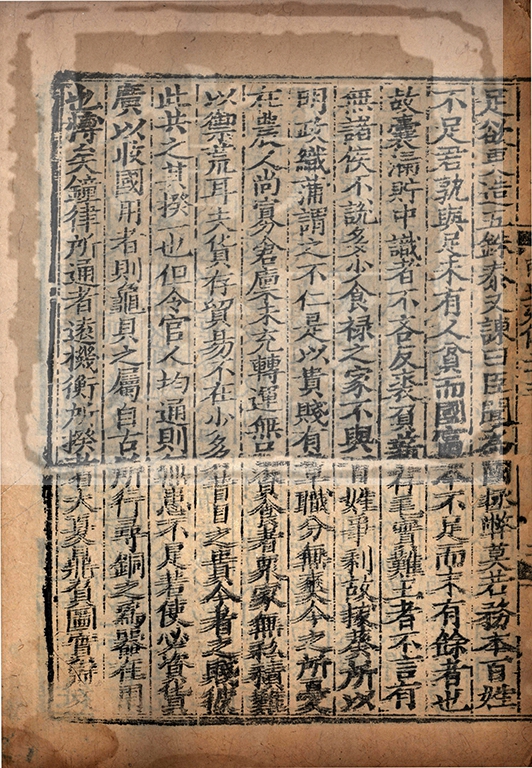 足欲更造五銖泰又諫曰臣聞為國拯弊莫若務本百姓
不足君孰與足未有人貧而國富本不足而末有餘者也
故囊漏貯中識者不吝反裘負薪存毛實難王者不言有
無諸侯不說多少食禄之家不與百姓爭利故拔葵所以
明政織蒲謂之不仁是以貴賤有章職分無爽今之所憂
在農人尚寡倉廩未充轉運無已資食者衆家無私積難
以禦荒耳夫貨存貿易不在少多昔日之貴今者之賤彼
此共之其揆一也但令官人均通則無患不足若使必資貨
廣以收國用者則龜貝之屬自古所行尋銅之為器在用
也博矣鐘律所通者遠機衡所揆者大夏鼎負圖實